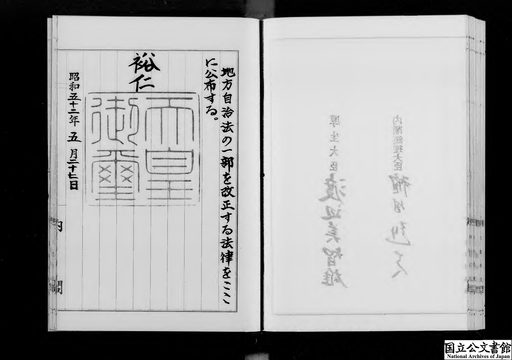 地方自治法の一部を改正する法律をここ
に公布する。
裕仁
天皇
御璽
昭和五十二年 五 月二十七日
内
閣
厚生大臣 渡辺美智雄
国立公文書館
National Archives of Japan